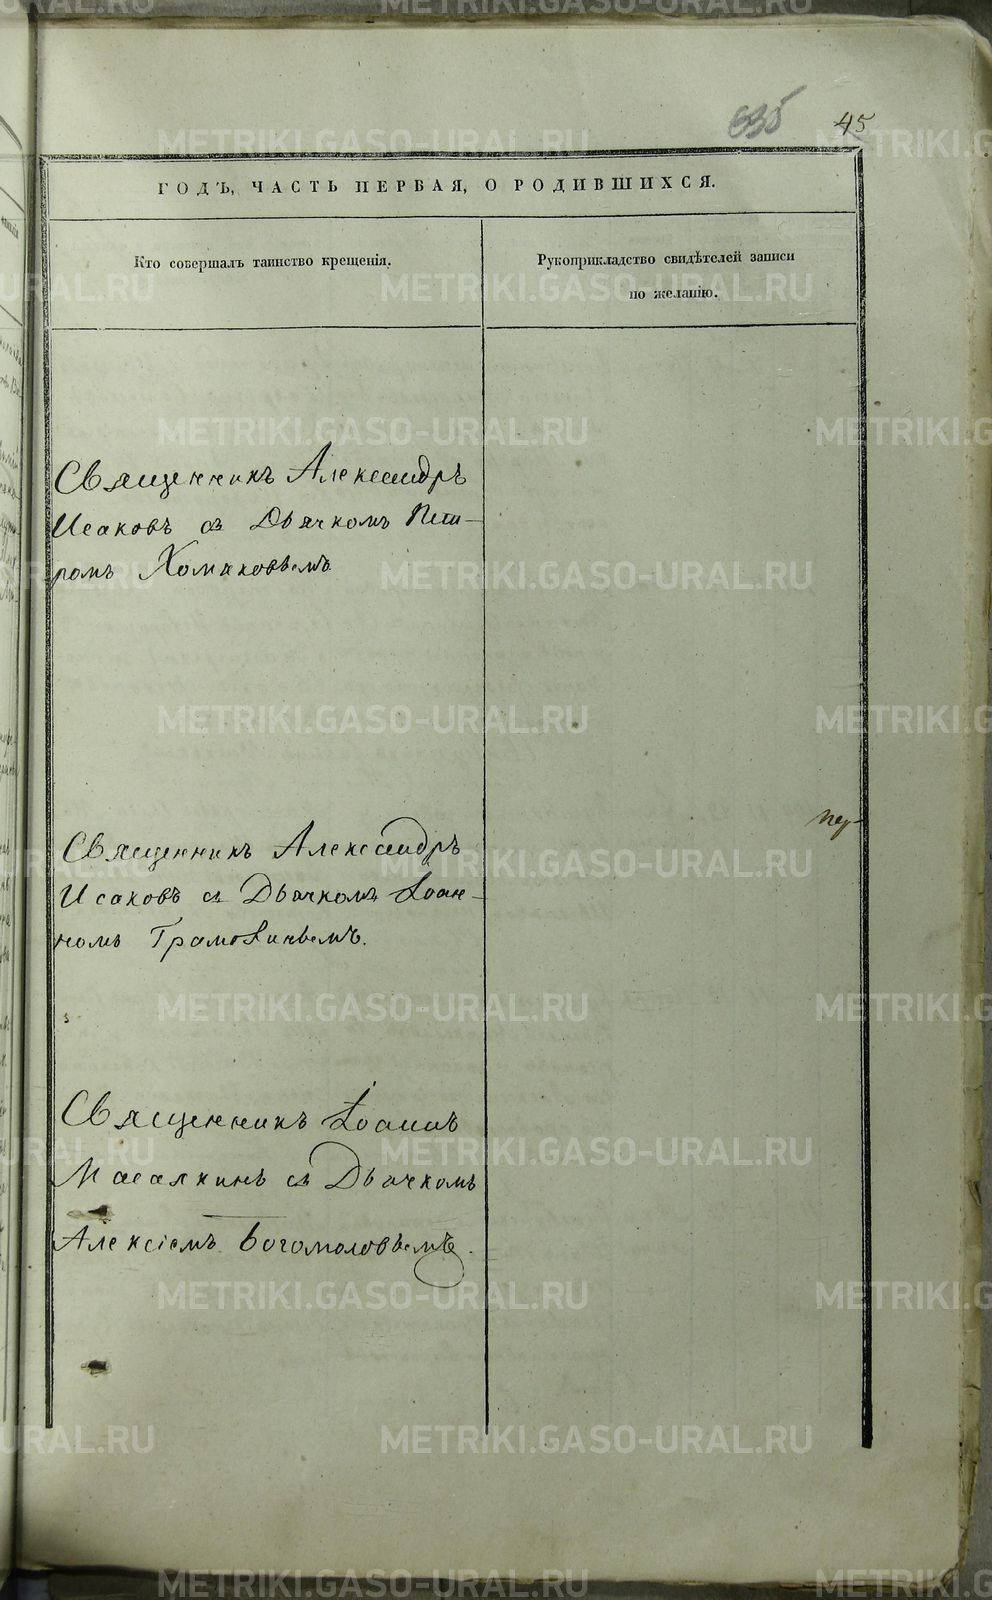 635 45
ГОДЪ, ЧАСТЬ ПЕРВАЯ, О РОДИВШИХСЯ.
Кто совершалъ таинство крещенія.
Рукоприкладство свидѣтелей записи
по желанію.
Священникъ Александръ
Исаковъ съ Дьячкомъ Пет-
ромъ Хомяковымъ
Священникъ Александръ
Исаковъ съ Дьячкомъ Іоан-
номъ Грамолинымъ.
Священникъ Іоаннъ
Масалкинъ съ Дьячкомъ
Алексіемъ Богомоловымъ.
METRIKI.GASO-URAL.RU